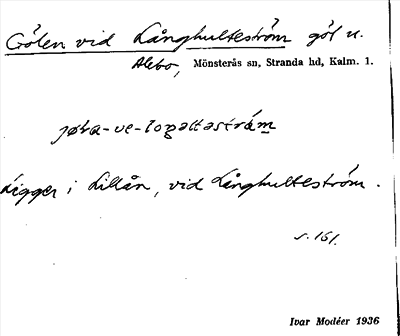 Gölen vid Långhulteström göl u.
Alebo, Mönsterås sn, Stranda hd, Kalm. l.
Ligger i Lillån, vid Långhulteström.
s. 161.
Ivar Modéer 1936